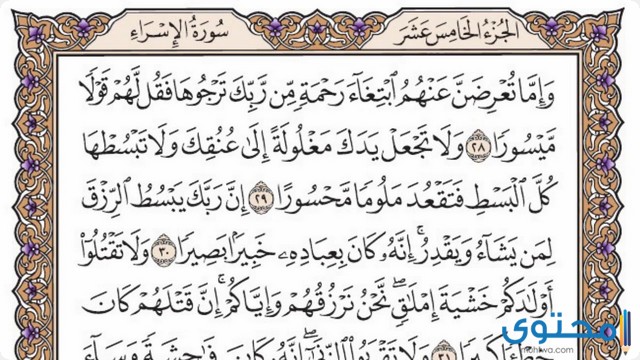 الجزء الخامس عشر
سورة الإسراء
وَإِمَّا تُعْرِضَنَّ عَنْهُمُ ٱبْتِغَآءَ رَحْمَةٍ مِّن رَّبِّكَ تَرْجُوهَا فَقُل لَّهُمْ قَوْلًا
مَّيْسُورًا ٢٨ وَلَا تَجْعَلْ يَدَكَ مَغْلُولَةً إِلَىٰ عُنُقِكَ وَلَا تَبْسُطْهَا
كُلَّ ٱلْبَسْطِ فَتَقْعُدَ مَلُومًا مَّحْسُورًا ٢٩ إِنَّ رَبَّكَ يَبْسُطُ ٱلرِّزْقَ
لِمَن يَشَآءُ وَيَقْدِرُ ۚ إِنَّهُۥ كَانَ بِعِبَادِهِۦ خَبِيرًۢا بَصِيرًا ٣٠ وَلَا تَقْتُلُوٓا۟
أَوْلَٰدَكُمْ خَشْيَةَ إِمْلَٰقٍ ۖ نَّحْنُ نَرْزُقُهُمْ وَإِيَّاكُمْ ۚ إِنَّ قَتْلَهُمْ كَانَ
كَبِيرًا ٣١ وَلَا تَقْرَبُوا۟ ٱلزِّنَىٰٓ ۖ إِنَّهُۥ كَانَ فَٰحِشَةً وَسَآءَ
محتوى
mohtwa.com